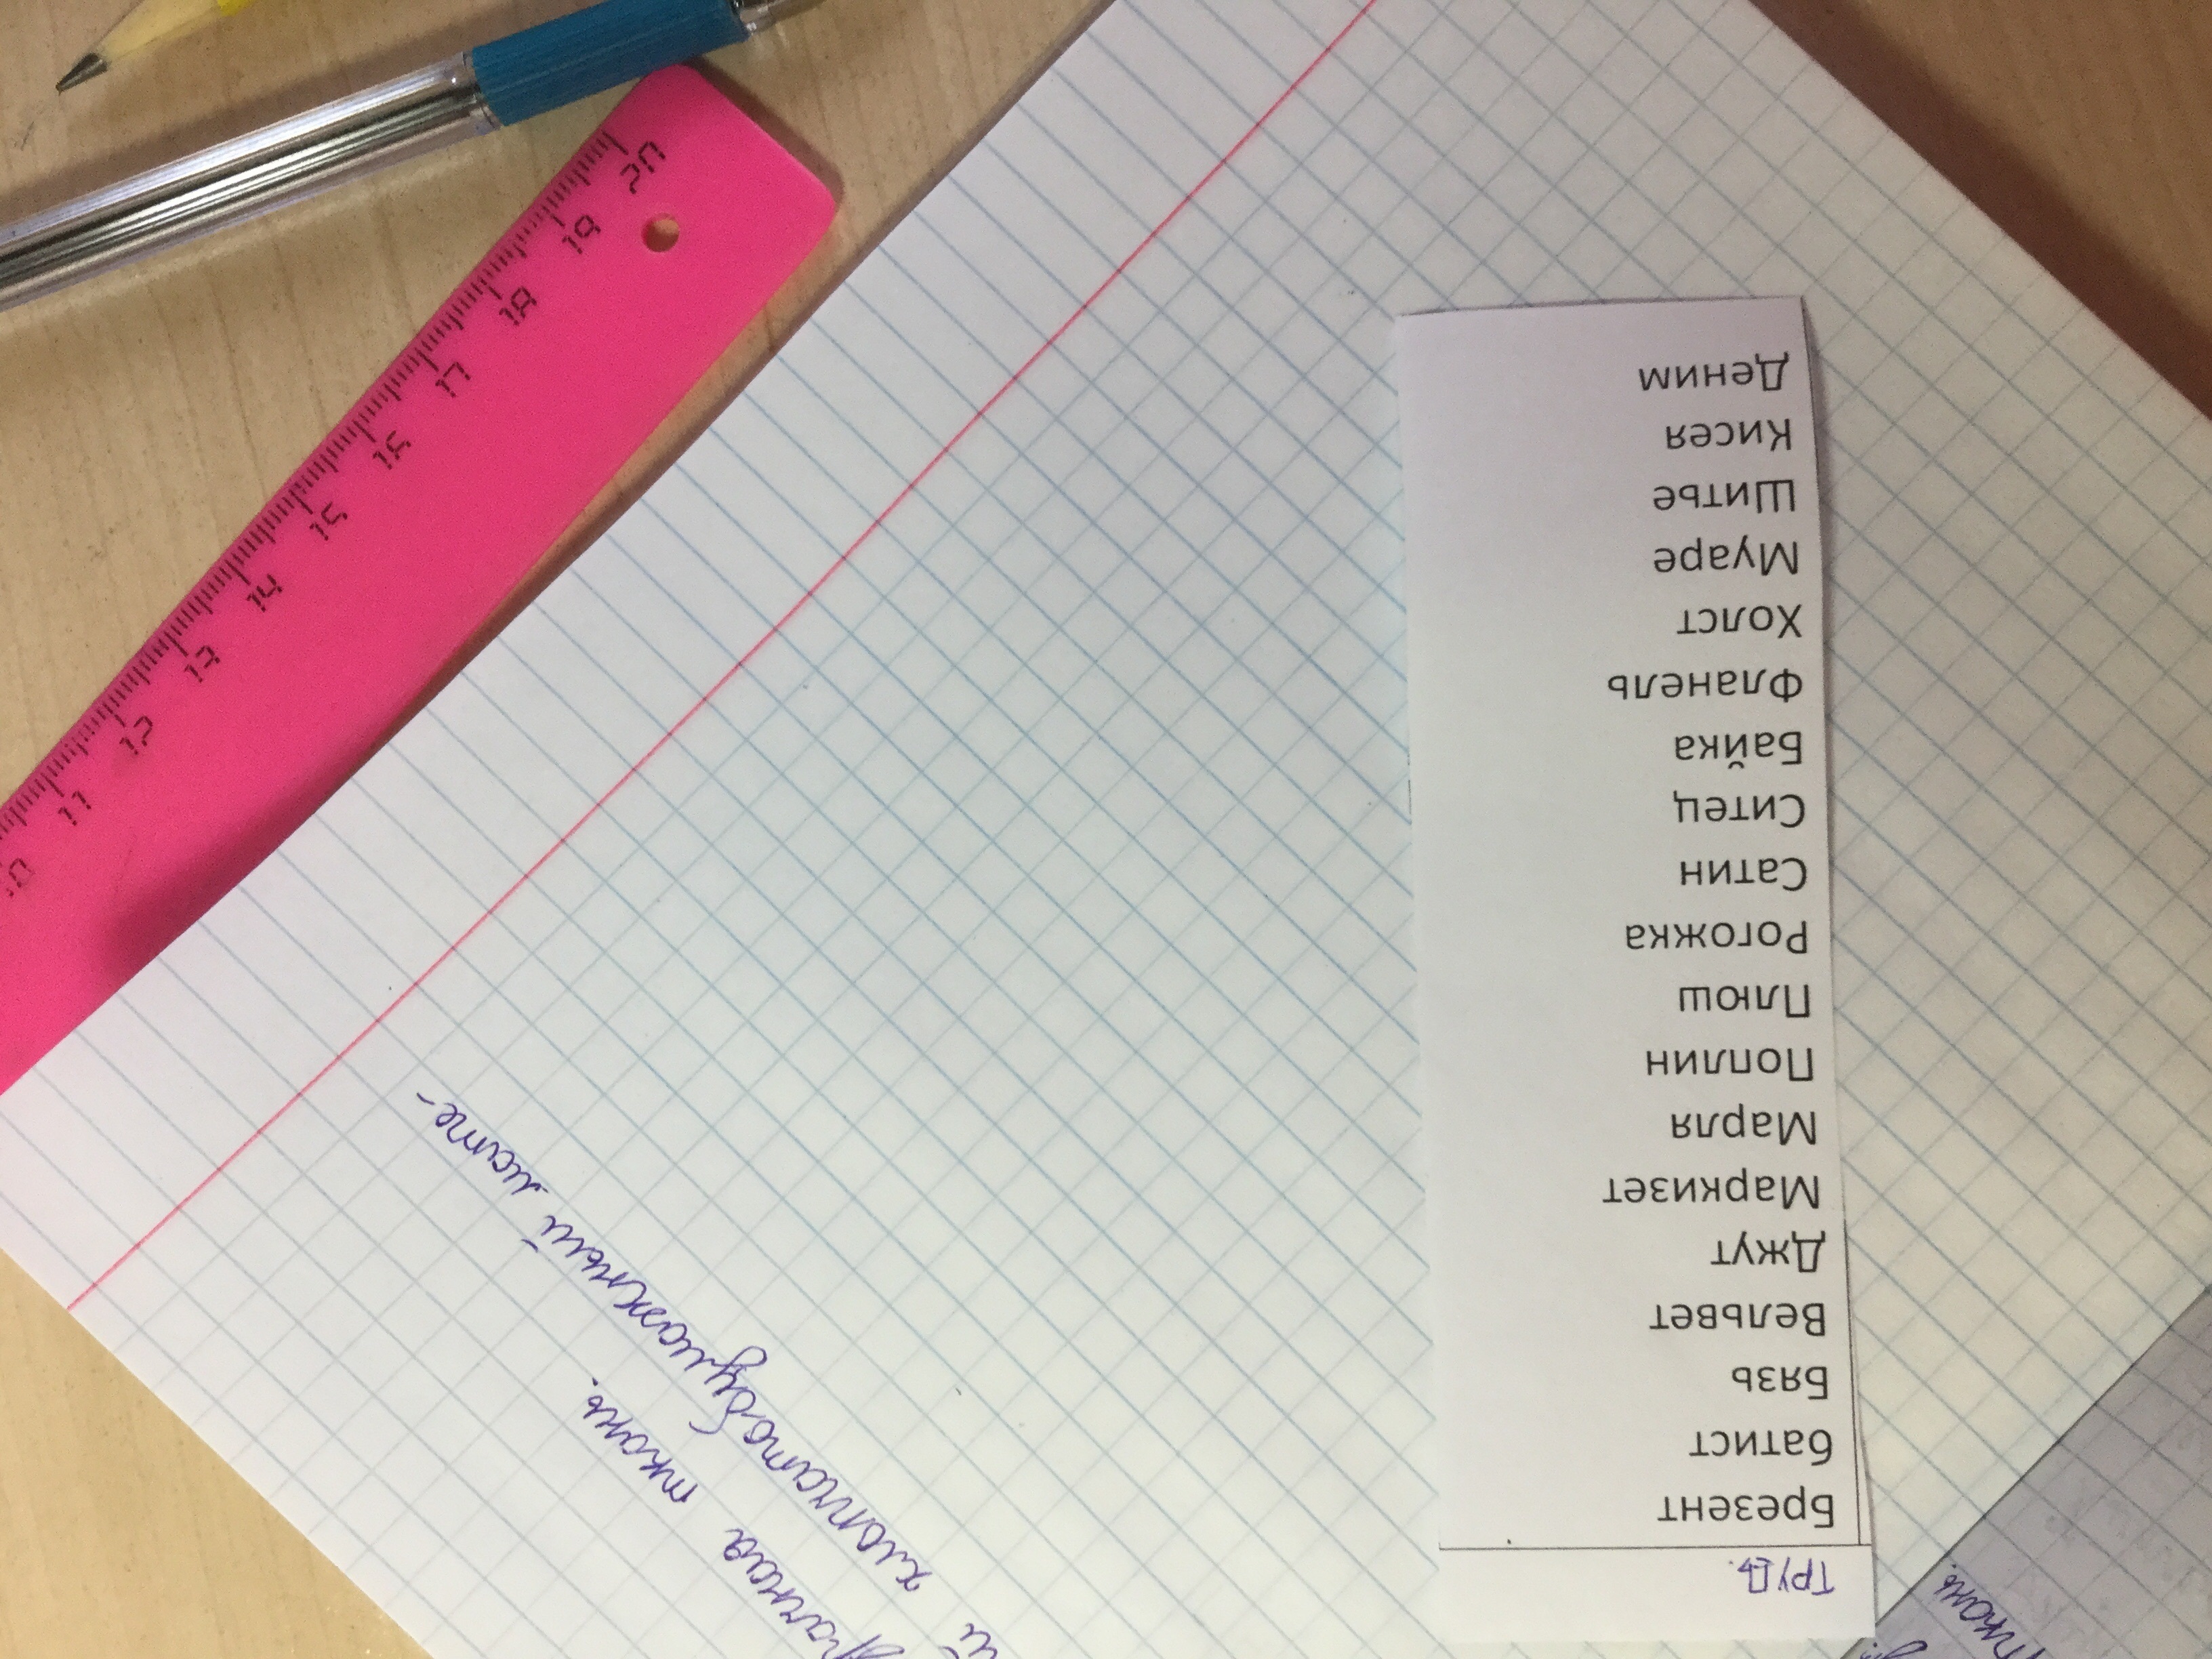 ткань.
ТРУД.
Брезент
батист
Бязь
Вельвет
Джут
Маркизет
Марля
Поплин
Плюш
Рогожка
Сатин
Ситец
Байка
Фланель
Холст
Муаре
Шитье
Кисея
Деним
ткань.
хлопчатобумажный мате-
11
12
13
14
15
16
17
18
19
20